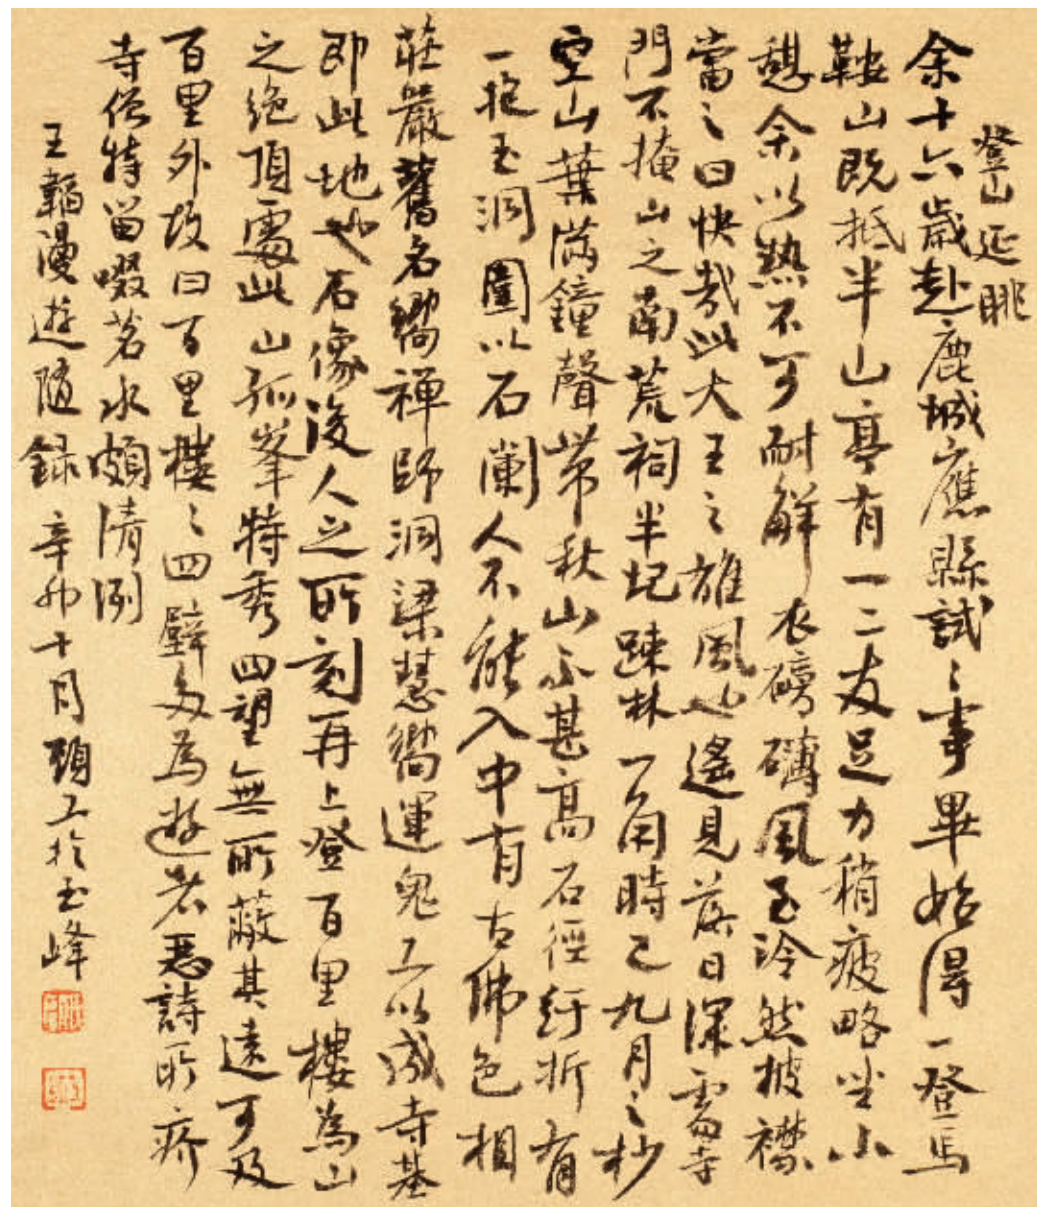 登山延眺
余十六歲赴鹿城應縣試〻事畢始得一登馬
鞍山既抵半山亭有一二友足力稍疲略坐小
憩余以熱不可耐解衣磅礴風至泠然披襟
當之曰快哉此大王之雄風也遙見落日深處寺
門不掩山之南荒祠半圮疎林一角時已九月之杪
空山葉滿鐘聲帶秋山不甚高石徑紆折有
一抱玉洞圍以石闌人不能入中有古佛色相
莊嚴舊名嚮禪師洞梁慧嚮運鬼工以成寺基
即此地也石像後人之所刻再上登百里樓為山
之絕頂處此山孤峯特秀四望無所蔽其遠可及
百里外故曰百里樓〻四壁多為遊者惡詩所疥
寺僧特留啜茗水頗清冽
王韜漫遊隨錄辛卯十月頭工於玉峰